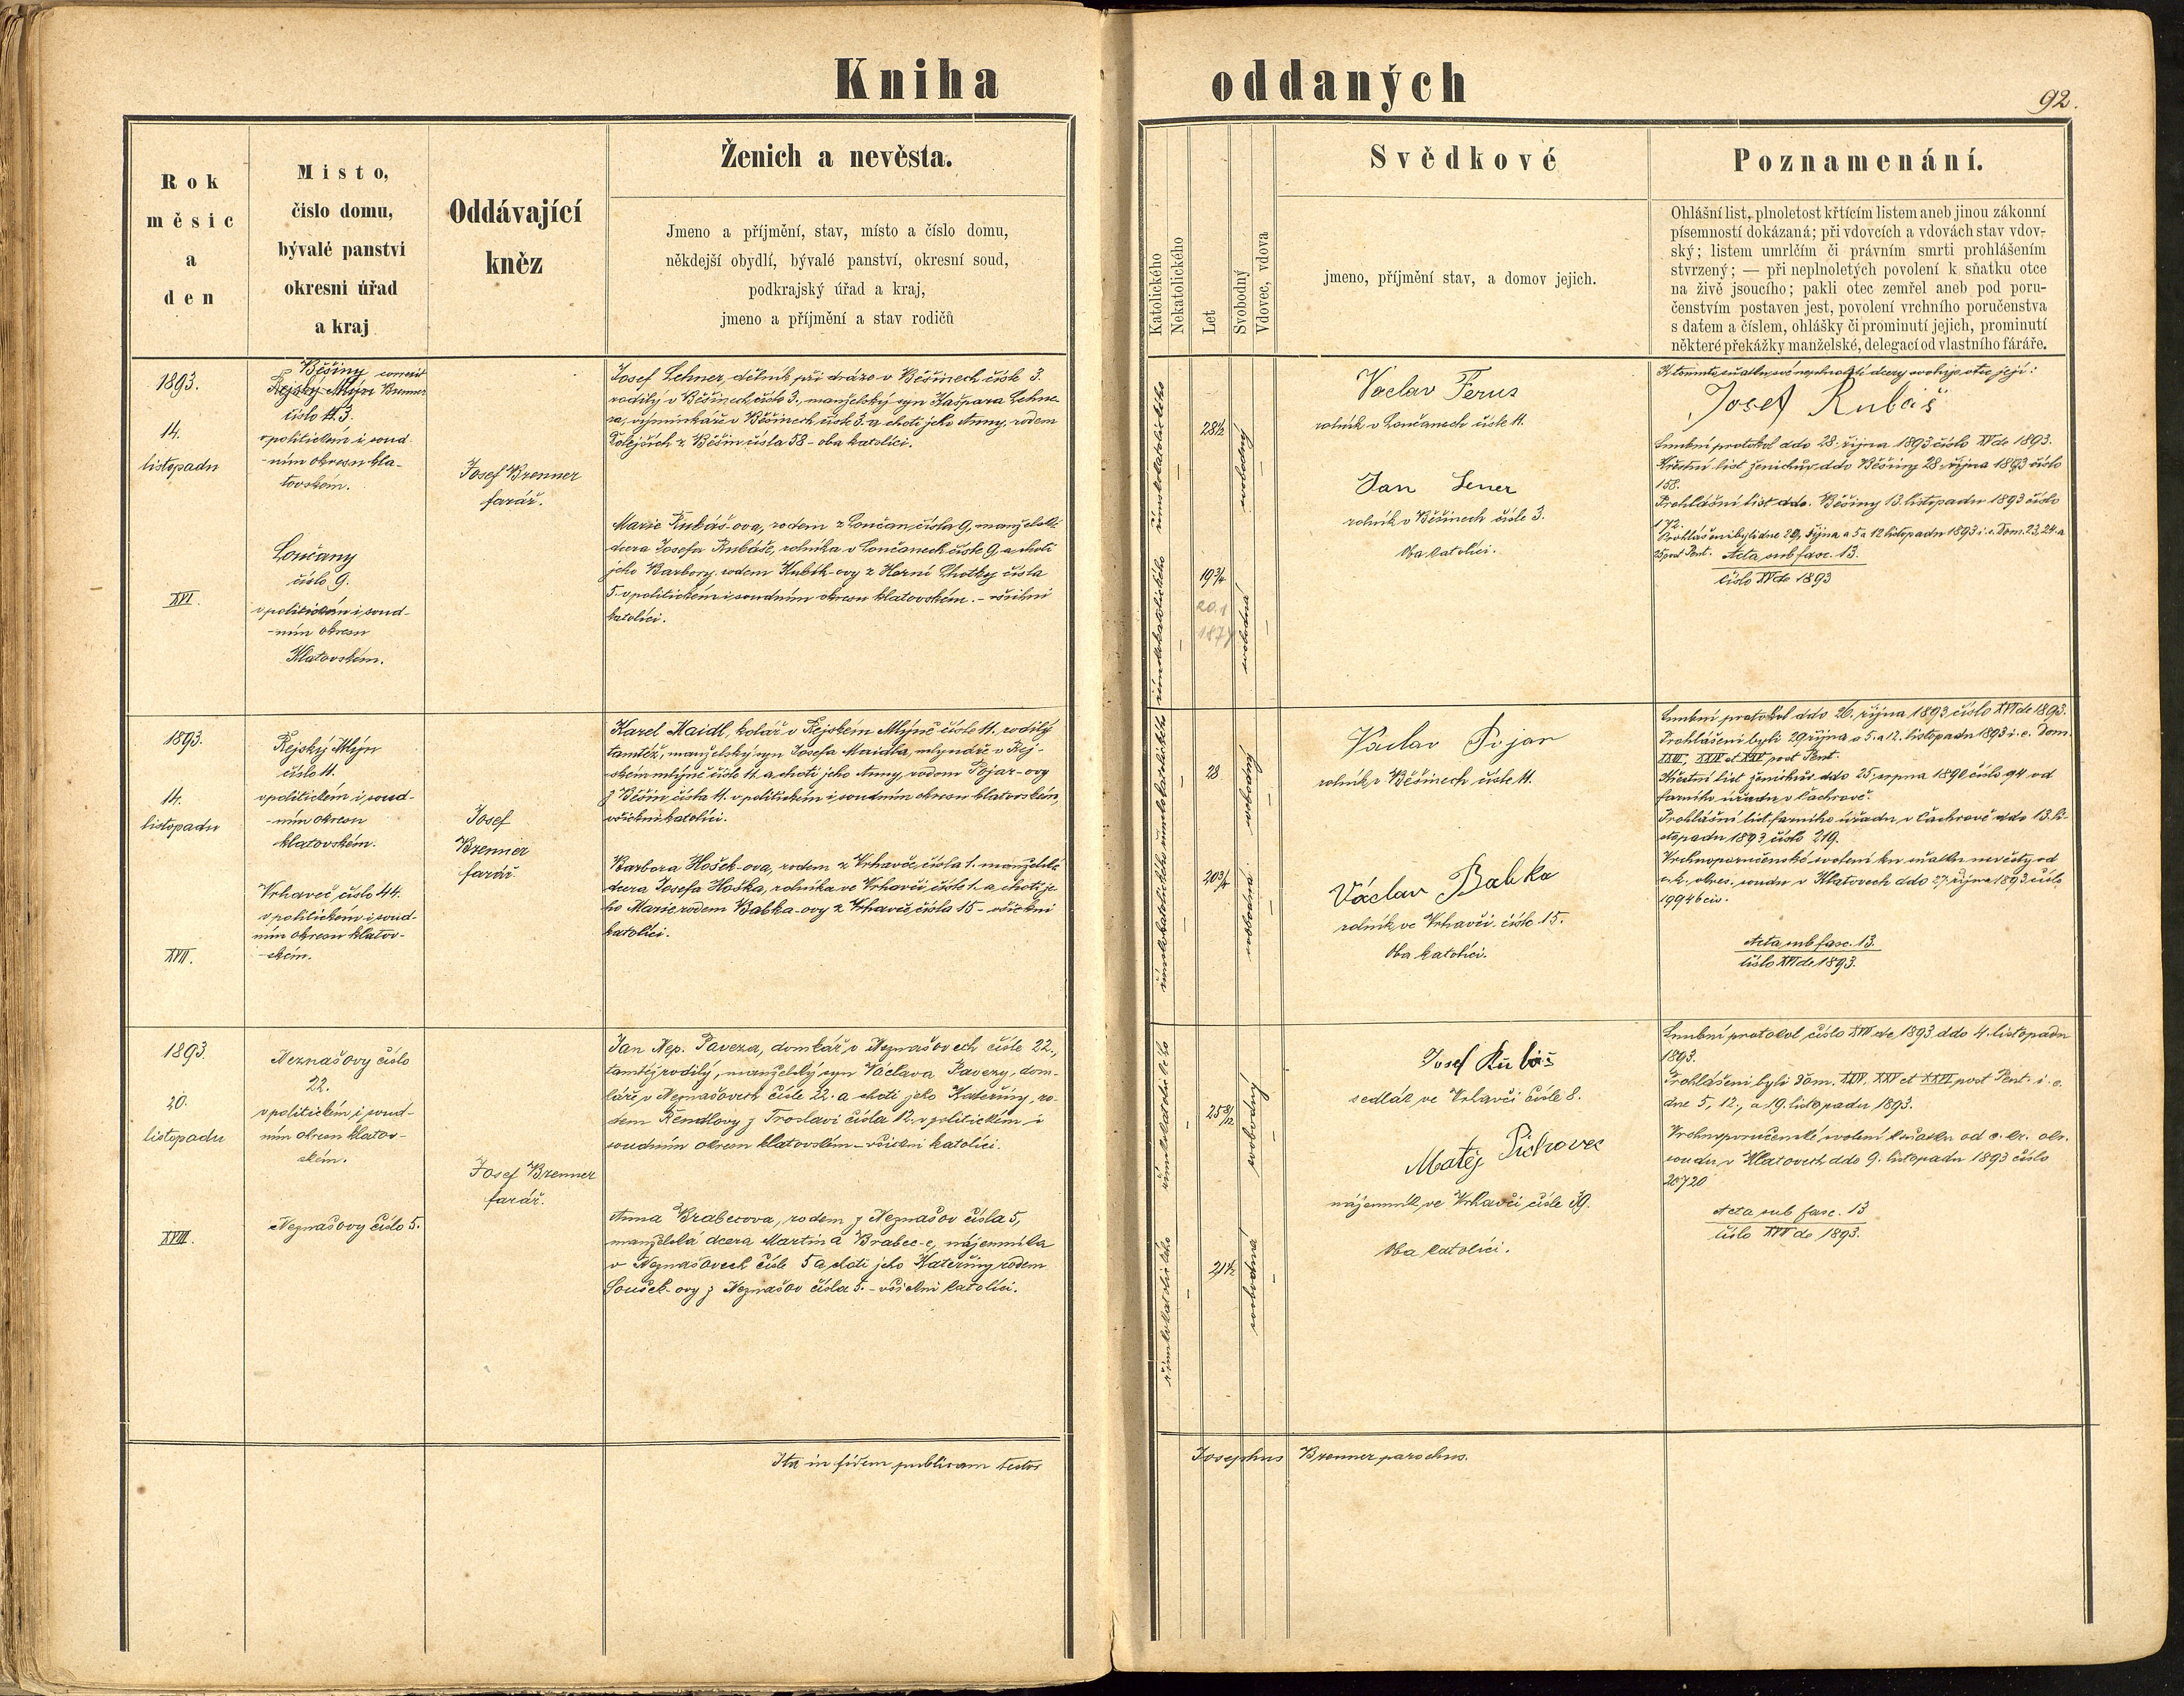 Kniha oddaných
92.
Rok
měsíc
a
den
Místo,
číslo domu,
bývalé panství
okresní úřad
a kraj
Oddávající
kněz
Ženich a nevěsta.
Jmeno a příjmění, stav, místo a číslo domu,
někdejší obydlí, bývalé panství, okresní soud,
podkrajský úřad a kraj,
jmeno a příjmění a stav rodičů
Katolického
Nekatolického
Let
Svobodný
Vdovec, vdova
Svědkové
jmeno, příjmění stav, a domov jejich.
Poznamenání.
Ohlášní list, plnoletost křtícím listem aneb jinou zákonní
písemností dokázaná; při vdovcích a vdovách stav vdov-
ský; listem umrlčím či právním smrti prohlášením
stvrzený; — při neplnoletých povolení k sňatku otce
na živě jsoucího; pakli otec zemřel aneb pod poru-
čenstvím postaven jest, povolení vrchního poručenstva
s datem a číslem, ohlášky či prominutí jejich, prominutí
některé překážky manželské, delegací od vlastního fáráře.
1893.
14.
listopadu
XVI.
Běšiny correxit
Rejský Mlýn Brenner
číslo 11. 3.
v politickém i soud-
-ním okresu kla-
tovském.
Loučany
číslo 9.
v politickém i soud-
-ním okresu
Klatovském.
Josef Brenner
farář.
Josef Lehner, dělník při dráze v Běšinech čísle 3.
rodilý v Běšinech číslo 3., manželský syn Kašpara Lehne-
ra, výminkáře v Běšinech čísle 3. a choti jeho Anny, rodem
Tolejších z Běšin čísla 58 - oba katolíci.
Marie Rubáš-ova, rodem z Loučan čísla 9, manželská
dcera Josefa Rubáše, rolníka v Loučanech čísle 9 a choti
jeho Barbory, rodem Kubík-ovy z Horní Lhotky čísla
5. v politickém i soudním okresu klatovském. - všichni
katolíci.
římskokatolického
28 1/2
svobodný
římskokatolického
19 3/4
20.1
1874
svobodná
Václav Ferus
rolník v Loučanech čísle 11.
Jan Lener
rolník v Běšinech čísle 3.
Oba katolíci.
K tomuto sňatku své neplnoleté dcery svoluje otec její:
Josef Rubáš
Snubní protokol ddo 28. října 1893 číslo XV de 1893.
Křestní list ženichův ddo Běšiny 28. října 1893 číslo
158.
Prohlášní list ddo. Běšiny 13. listopadu 1893 číslo
172.
Prohlášeni byli dne 29. října a 5. a 12 listopadu 1893 i. e. Dom. 23, 24. a
25 post Pent. Acta sub fasc. 13.
číslo XV de 1893
1893.
14.
listopadu
XVII.
Rejský Mlýn
číslo 11.
v politickém i soud-
-ním okresu
klatovském.
Vrhaveč, číslo 44.
v politickém i soud-
ním okresu klatov-
-ském.
Josef
Brenner
farář
Karel Maidl, kolář v Rejském Mlýně čísle 11. rodilý
tamtéž, manželský syn Josefa Maidla, mlynáře v Rej-
ském mlýně čísle 11. a choti jeho Anny, rodem Pojar-ovy
z Běšin čísla 11. v politickém i soudním okresu klatovském,
všichni katolíci.
Barbora Hošek-ova, rodem z Vrhavče, čísla 1. manželská
dcera Josefa Hoška, rolníka ve Vrhavči čísle 1. a choti je-
ho Marie rodem Babka-ovy z Vrhavče, čísla 15 - všickni
katolíci.
římskokatolického
28
svobodný
římskokatolického
20 3/4
svobodná
Václav Pojar
rolník v Běšinech čísle 11.
Václav Babka
rolník ve Vrhavči. čísle 15.
Oba katolíci.
Snubní protokol ddo 26. října 1893 číslo XVI de 1893.
Prohlášeni byli 29 října a 5. a 12. listopadu 1893 i. e. Dom.
XXIII, XXIV et XXV post Pent.
Křestní list ženichův ddo 25. srpna 1890 číslo 94 od
farního úřadu v Čachrově.
Prohlášní list farního úřadu v Čachrově ddo 13. li-
stopadu 1893 číslo 219.
Vrchnoporučenské svolení ku sňatku nevěsty od
c. k. okres. soudu v Klatovech ddo 27. října 1893 číslo
19946 civ.
Acta sub fasc. 13.
číslo XVI de 1893.
1893.
20.
listopadu
XVIII.
Neznašovy číslo
22.
v politickém i soud-
ním okresu klatov-
ském.
Neznašovy číslo 5.
Josef Brenner
farář.
Jan Nep. Paveza, domkář v Neznašovech čísle 22.,
tamtéž rodilý, manželský syn Václava Pavezy, dom-
káře v Neznašovech čísle 22. a choti jeho Kateřiny, ro-
dem Rendlovy z Troslavi čísla 12. v politickém i
soudním okresu klatovském - všickni katolíci.
Anna Brabcova, rodem z Neznašov čísla 5,
manželská dcera Martina Brabec-e, nájemníka
v Neznašovech čísle 5 a choti jeho Kateřiny rodem
Soušek-ovy z Neznašov čísla 5. - všickni katolíci.
římskokatolického
25 8/12
svobodný
římskokatolického
21 1/2
svobodná
Josef Rubáš
sedlák ve Vrhavči čísle 8.
Matěj Pichovec
nájemník ve Vrhavči čísle 39.
Oba katolíci.
Snubní protokol číslo XVII de 1893 ddo 4. listopadu
1893.
Prohlášeni byli Dom. XXIV, XXV et XXVI post Pent. i. e.
dne 5., 12., a 19. listopadu 1893.
Vrchnoporučenské svolení k sňatku od c. kr. okr.
soudu v Klatovech ddo 9. listopadu 1893 číslo
20720
Acta sub fasc. 13
číslo XVII de 1893.
Ita in fidem publicam testor Josephus Brenner parochus.